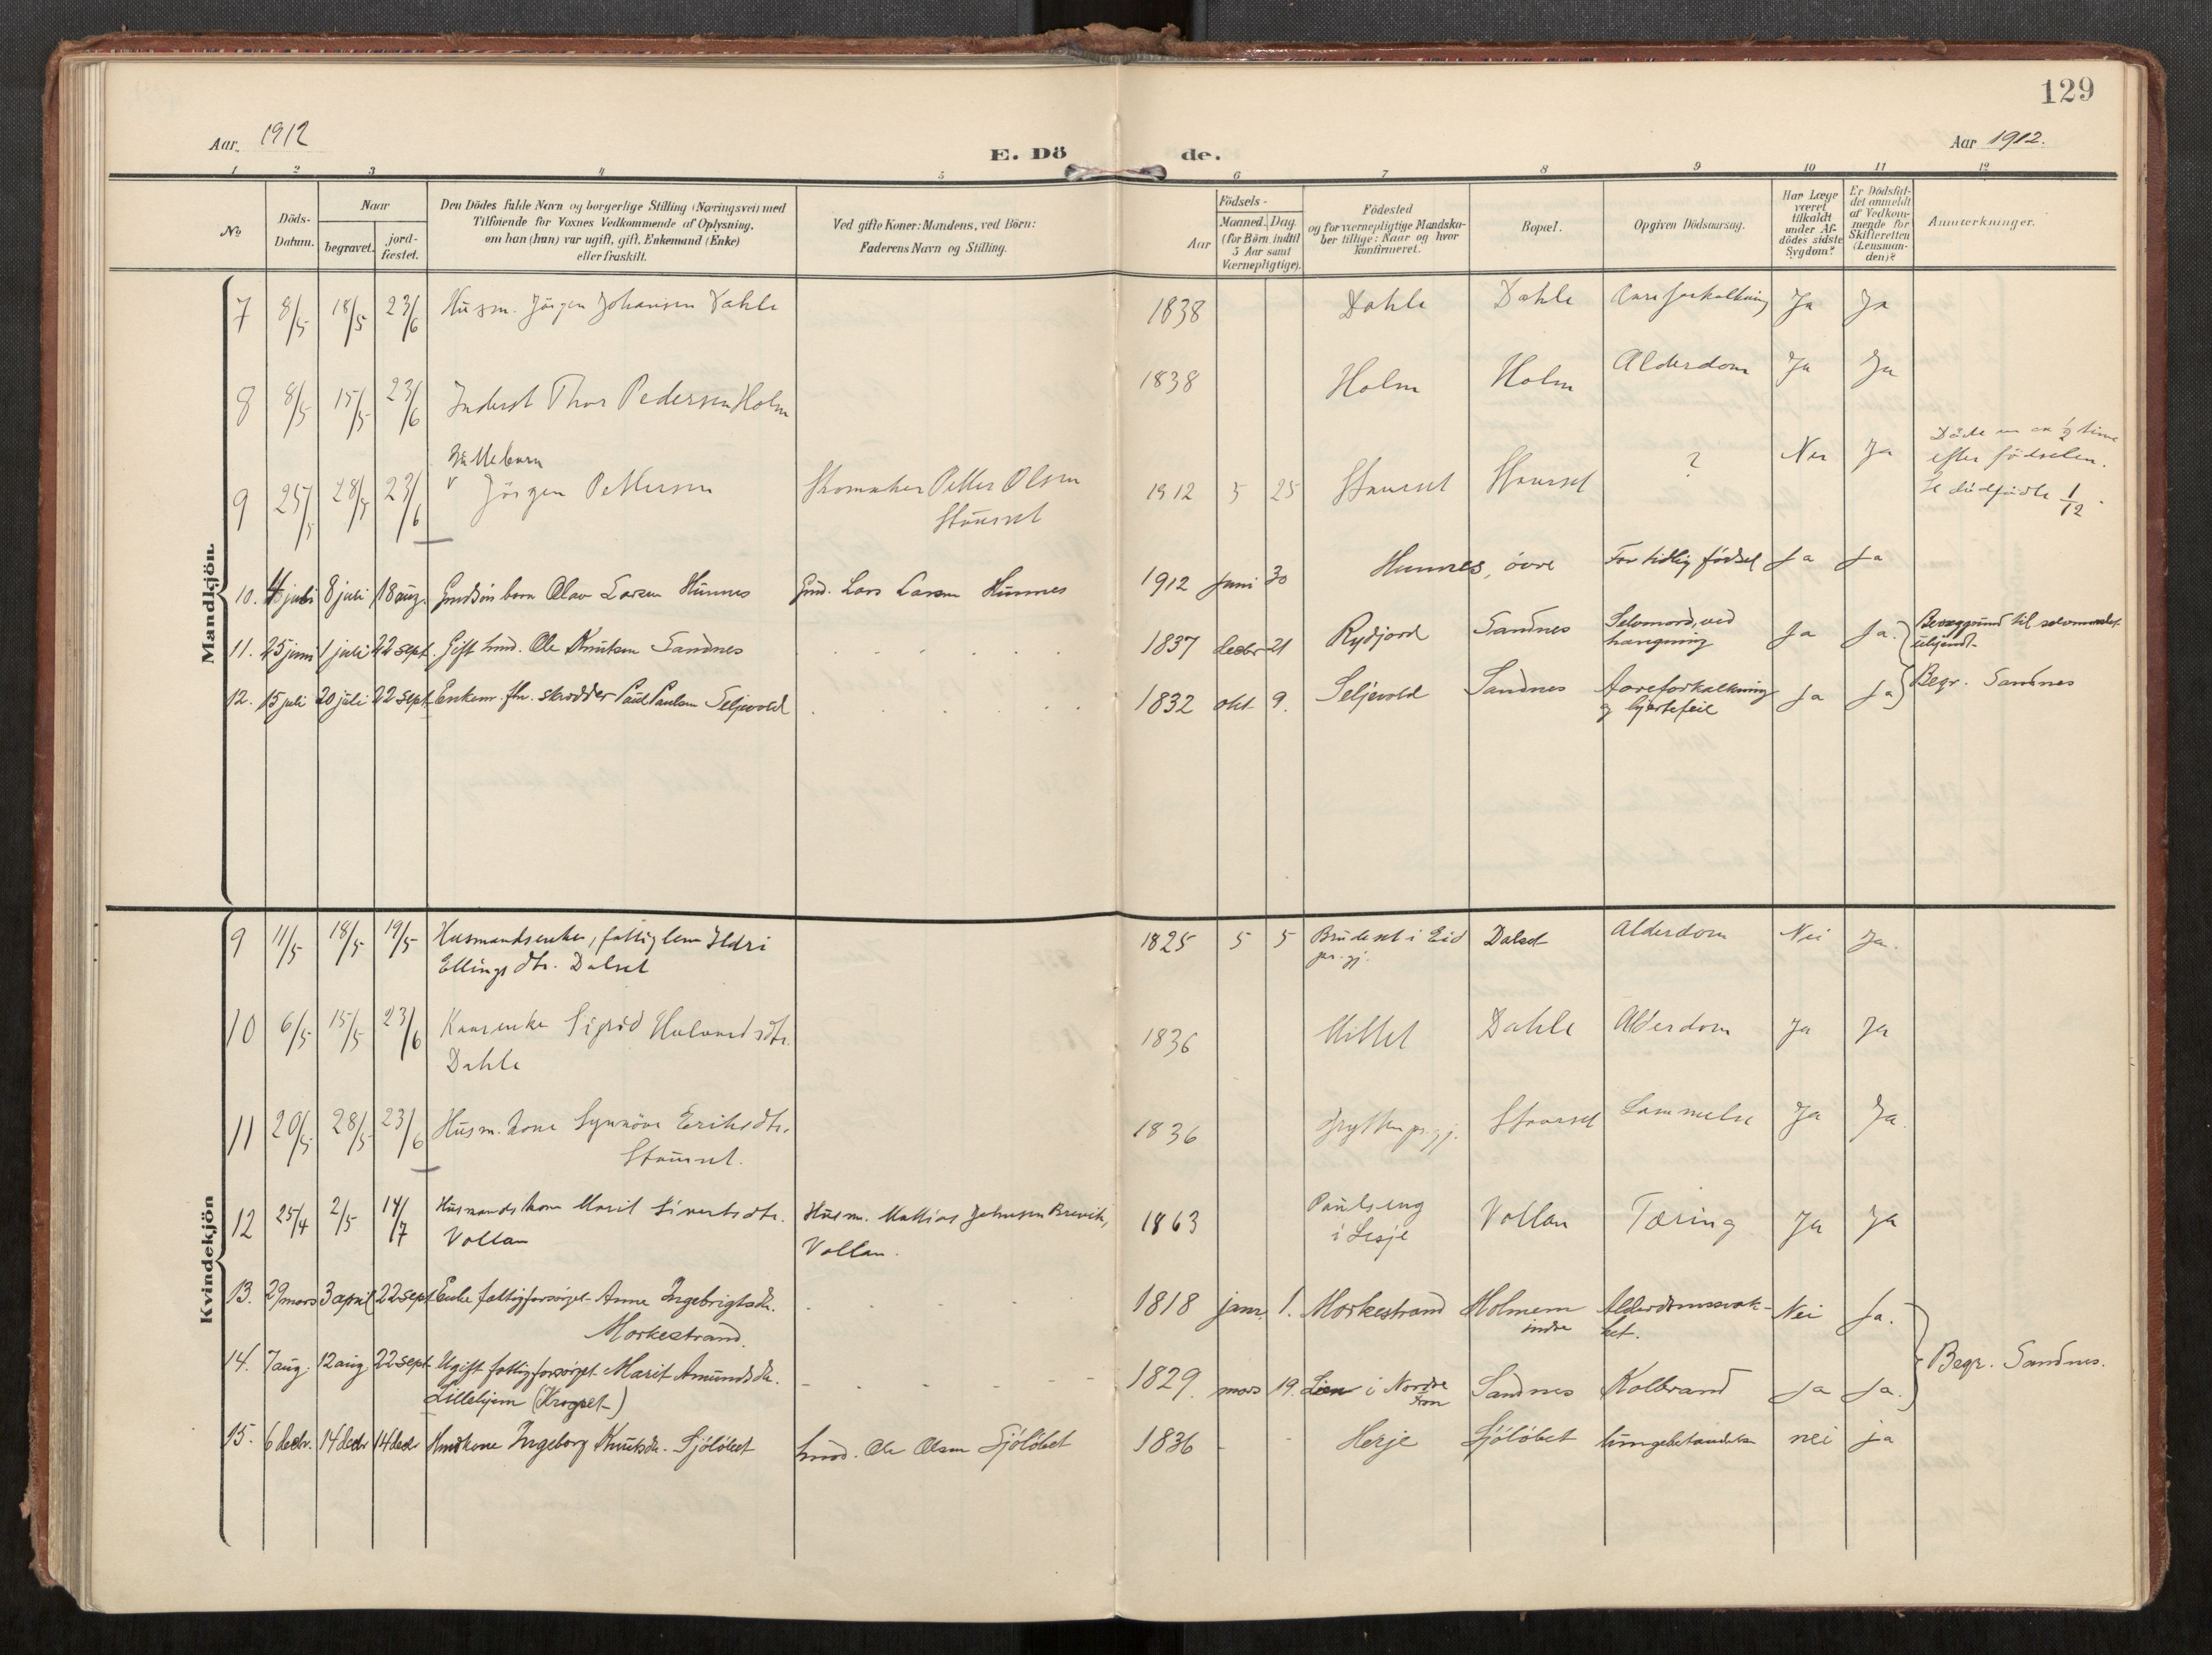 129
Aar 1912
E. Döde.
Aar 1912.
1 2 3 4 5 6 7 8 9 10 11 12
No
Döds-Datum.
Naar
begravet.
jord-fæstet.
Den Dödes fulde Navn og borgerlige Stilling (Næringsvei) med
Tilföiende for Voxnes Vedkommende af Oplysning,
om han (hun) var ugift, gift, Enkemand (Enke)
eller fraskilt.
Ved gifte Koner: Mandens, ved Börn:
Faderens Navn og Stilling.
Födsels-
Aar
Maaned. Dag.
(for Börn indtil
5 Aar samt
Værnepligtige).
Födested
og for værnepligtige Mandska-
ber tillige: Naar og hvor
Konfirmeret.
Bopæl.
Opgiven Dödsaarsag.
Har Læge
været
tilkaldt
under Af-
dödes sidste
Sygdom?
Er Dödsfal-
det anmeldt
af Vedkom-
mende for
Skifteretten
(Lensman-
den)?
Anmærkninger.
Mandkjön.
7 8/5 18/5 23/6 Husm. Jörgen Johansen Dahle 1838 Dahle Dahle Aareforkalkning Ja Ja
8 8/5 15/5 23/6 Inderst Thor Pedersen Holm 1838 Holm Holm Alderdom Ja Ja
9 25/5 28/5 23/6 Jörgen Pettersen Skomaker Petter Olsen 1912 5 25 ? Nei Ja
efter födselen.
Se dödfödte 1/12.
10. juli 8 juli 18 aug. Olav Larsen Hunnes Gmd. Lars Larsen Hunnes 1912 Juni 30 Hunnes, övre For tidlig födsel Ja Ja
11. 25 juni 1 juli 22 sept. Gift kmd. Ole Knutsen Sandnes 1837 decbr 21 Rydjord Sandnes Selvmord, ved
hængning Ja Ja.
12. 15 juli 20 juli 22 sept Enkem. fhv. skrædder Paul Paulsen Seljevold 1832 okt 9. Seljevold Sandnes Aareforkalkning
og hjertefeil Ja Ja Begr. Sandnes
Kvindekjön
9 11/5 18/5 19/5 Husmandsenke, fattiglem Ildri
Ellingsdtr. Dalset 1825 5 5 Brudeset i Eid
pr.gj. Dalset Alderdom Nei Ja.
10 6/5 15/5 23/6 Kaarenke Sigrid Halvardsdtr.
Dahle 1836 Mittet Dahle Alderdom Ja Ja
11 20/5 28/5 23/6 Husm.kone Synnöve Eriksdtr. 1836 Grytten pr.gj. Lammelse Ja Ja.
12 25/4 2/5 14/7 Husmandskone Marit Sivertsdtr.
Vollan Husm. Mathias Johnsen Brevik,
Vollan. 1863 Paulseng
i Lesje Vollan Tæring Ja Ja
13. 29 mars 3 april 22 sept Enke fattigforsörget Anne Ingebrigtsdtr.
Morkestrand. 1818 janr. 1. Morkestrand Holmem
indre Alderdomssvak-
het. Nei Ja.
14. 7 aug. 12 aug 22 sept Ugift fattigforsörget Marit Amundsdtr.
Lillehjem (Krogset) 1829. mars 19. Lien i Nordre
Fron Sandnes Kolbrand Ja Ja.
Begr. Sandnes.
15. 6 decbr. 14 decbr 14 decbr Kmdkone Ingeborg Knutsdtr. Sjölöbet kmd. Ole Olsen Sjölöbet 1836 - - Herje Sjölöbet lungebetændelse nei ja